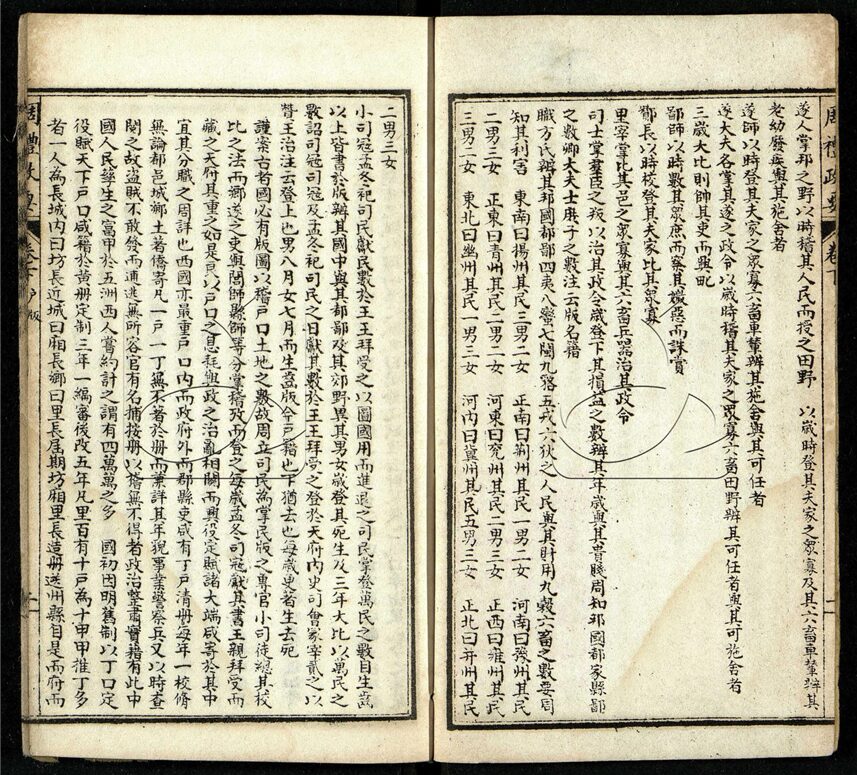 周禮政要 卷下
遂人掌邦之野以時稽其人民而授之田野 以歲時登其夫家之眾寡及其六畜車輦辨其
老幼廢疾與其施舍者
遂師以時登其夫家之眾寡六畜車輦辨其施舍與其可任者
遂大夫各掌其遂之政令以歲時稽其夫家之眾寡六畜田野辨其可任者與其可施舍者
三歲大比則帥其吏而興甿
鄙師以時數其眾庶而察其媺惡而誅賞
酇長以時校登其夫家比其眾寡
里宰掌比其邑之眾寡與其六畜兵器治其政令
司士掌羣臣之版以治其政令歲登下其損益之數辨其年歲與其貴賤周知邦國都家縣鄙
之數卿大夫士庶子之數注云版名籍
職方氏辨其邦國都鄙四夷八蠻七閩九貉五戎六狄之人民與其財用九穀六畜之數要周
知其利害 東南曰揚州其民二男五女 正南曰荆州其民一男二女 河南曰豫州其民
二男三女 正東曰青州其民二男二女 河東曰兗州其民二男三女 正西曰雍州其民
三男二女 東北曰幽州其民一男三女 河內曰冀州其民五男三女 正北曰并州其民
二男三女
小司寇孟冬祀司民獻民數於王王拜受之以圖國用而進退之司民掌登萬民之數自生齒
以上皆書於版辨其國中與其都鄙及其郊野異其男女歲登其死生及三年大比以萬民之
數詔司寇司寇及孟冬祀司民之日獻其數於王王拜受之登於天府內史司會冢宰貳之以
贊王治注云登上也男八月女七月而生齒版今戶籍也下猶去也每歲更著生去死
謹案古者國必有版圖以稽戶口土地之數故周立司民為掌民版之專官小司徒總其校
比之法而鄉遂之吏與閭師縣師等分掌稽攷而登之每歲孟冬司寇獻其書王親拜受而
藏之天府其重之如是良以戶口之息耗與政之治亂相關而興役定賦諸大端咸寄於其中
宜其分職之周詳也西國亦最重戶口內而政府外而郡縣吏咸有丁戶清冊每年一校脩
無論都邑城鄉土著僑寄凡一戶一丁無不著於冊而業詳其年貌事業警察兵又以時查
閱之故盜賊不敢發而逋逃無所容官有名捕按冊以稽無不得者政治整肅實藉有此中
國人民孳生之富甲於五洲西人嘗約計之謂有四萬萬之多 國初因明舊制以丁口定
役賦天下戶口咸籍於黃册定制三年一編審後改五年凡里百有十戶為十甲甲推丁多
者一人為長城內曰坊長近城曰廂長鄉曰里長屆期坊廂里長造册送州縣自是而府而
周禮政要 卷下 戶版